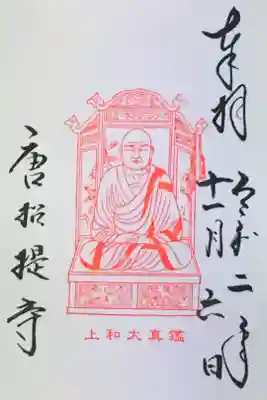 奉拝
令和二年
十一月六日
上和大真鑑
唐招提寺